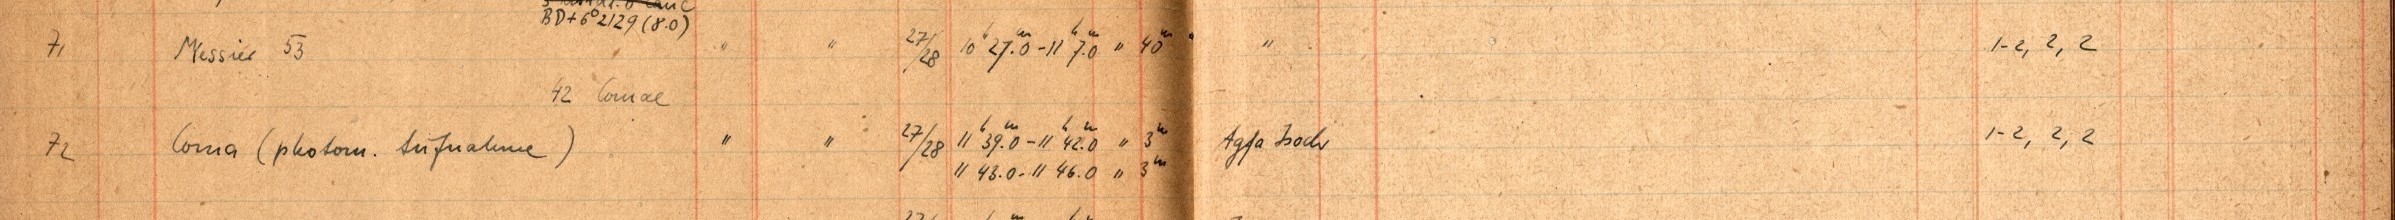 BD+6°2129 (8.0)
71 Messier 53 " " 27/28 10ʰ 27.0ᵐ - 11ʰ 7.0ᵐ " 40ᵐ " " 1-2, 2, 2
42 Comae
72 Coma (photom. Aufnahme) " " 27/28 11ʰ 39.0ᵐ - 11ʰ 42.0ᵐ " 3ᵐ Agfa Isochr 1-2, 2, 2
11 43.0 - 11 46.0 " 3ᵐ